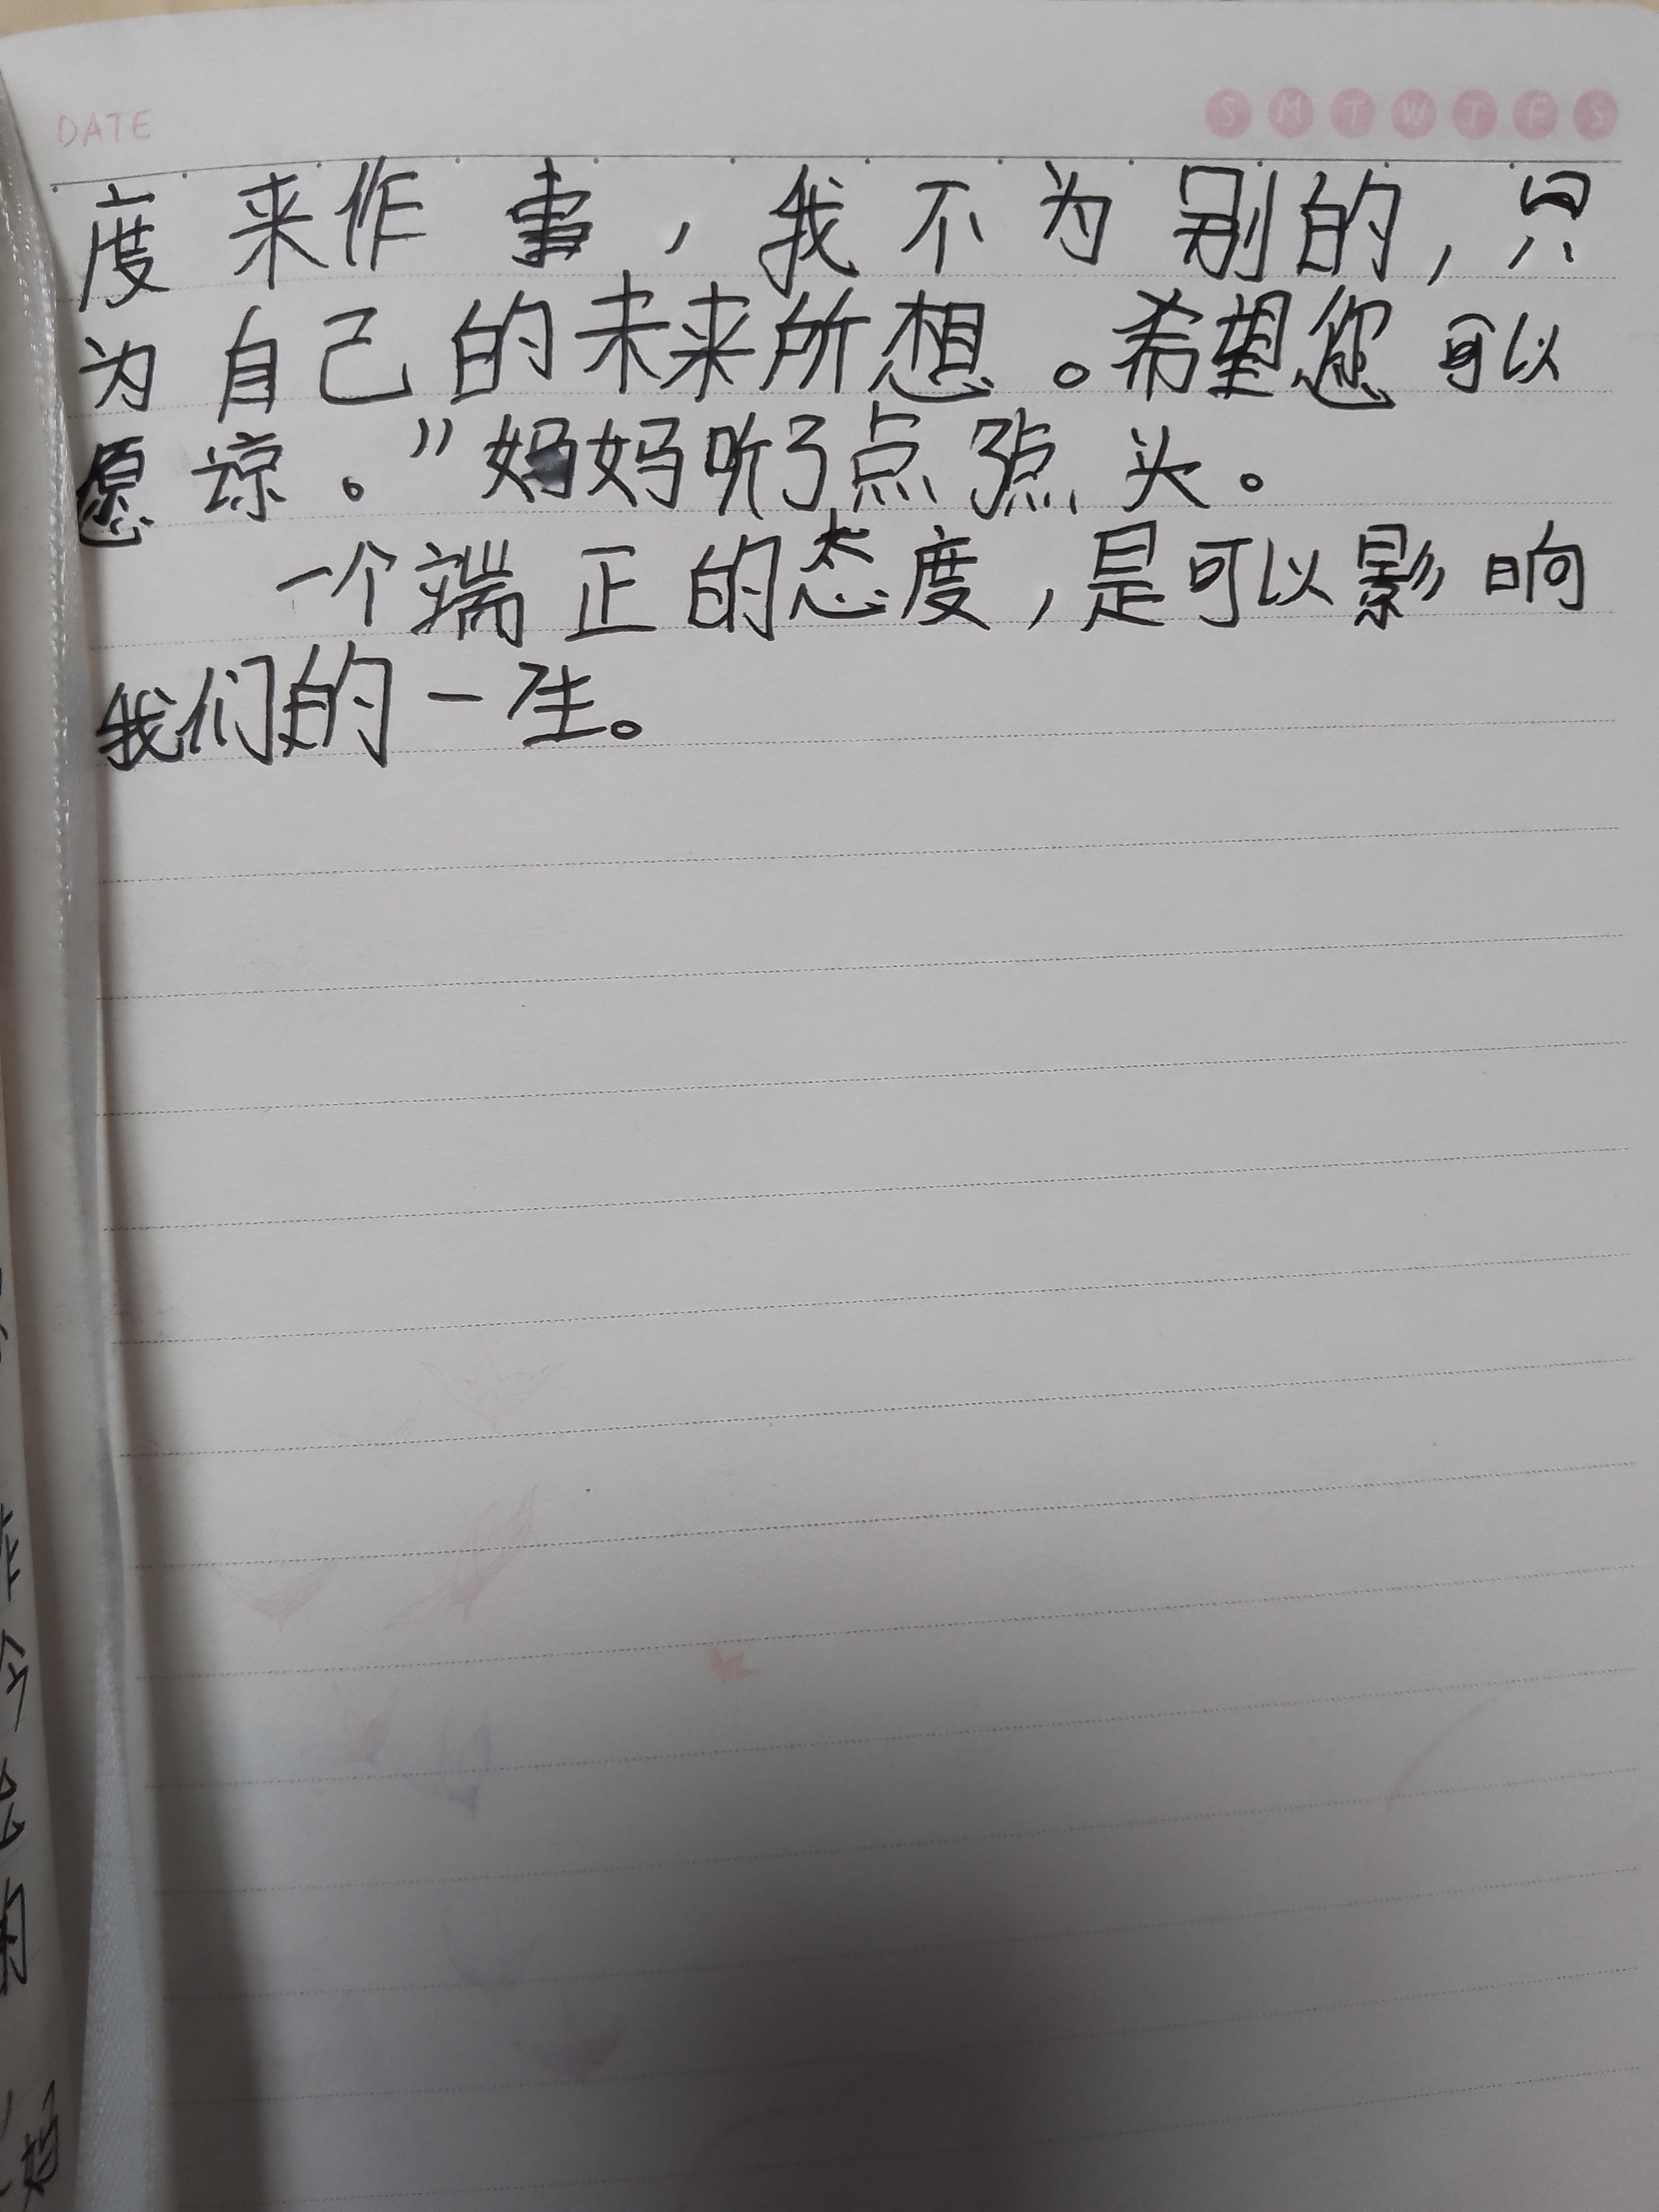 DATE S M T W T F S
度来作事，我不为别的，只
为自己的未来所想。希望您可以
愿谅。”妈妈听了点了点头。
一个端正的态度，是可以影响
我们的一生。